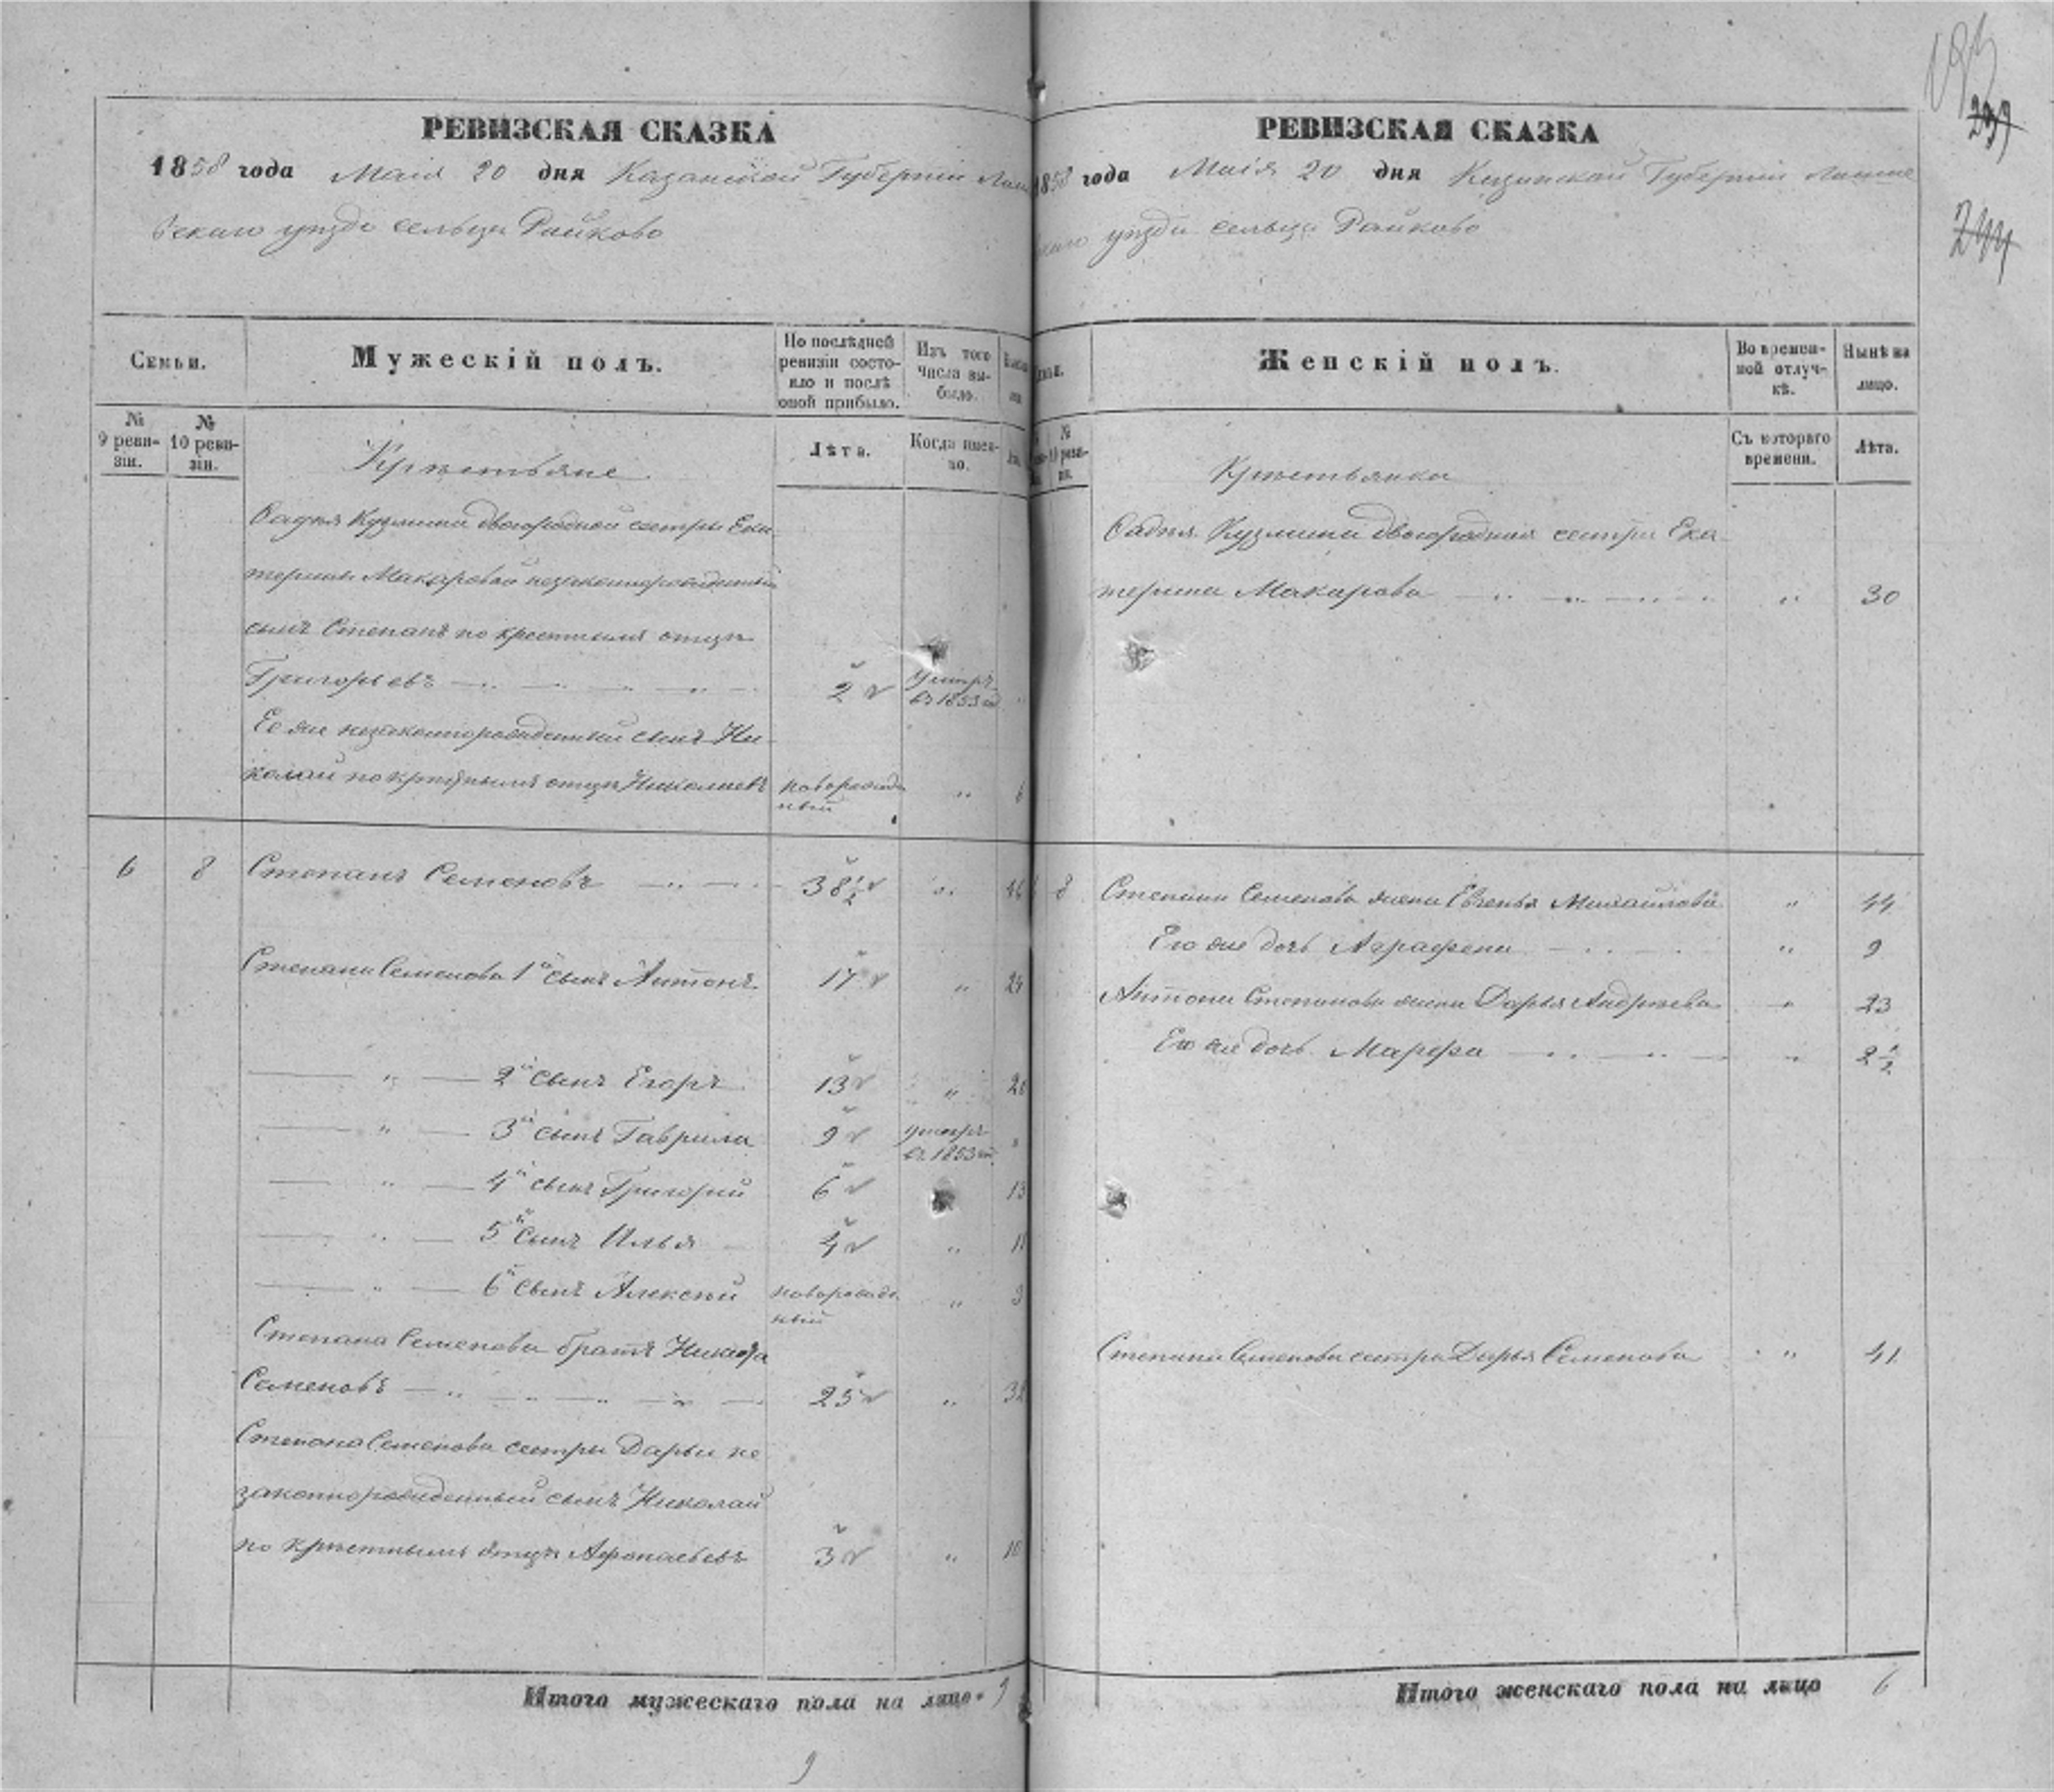 РЕВИЗСКАЯ СКАЗКА
1858 года Маія 20 дня Казанской Губерніи Лаи
вскаго уѣзда сельца Райково
Семьи.
Мужескій полъ.
По послѣдней ревизіи состояло и послѣ оной прибыло.
Изъ того числа выбыло.
№ 9 ревизіи.
№ 10 ревизіи.
Лѣта.
Когда именно.
Крестьяне
Фадея Кузмина двоюродной сестры Ека
терины Макаровой незаконнорожденный
сынъ Степанъ по крестнымъ отцѣ
Григорьевъ 2 умеръ въ 1853 го
Ее же незаконнорожденный сынъ Ни
колай по крестнымъ отцѣ Николаевъ новорожде
ный
6 8 Степанъ Семеновъ 38½ „
Степана Семенова 1й сынъ Антонъ 17 „
„ 2й сынъ Егоръ 13 „
„ 3й сынъ Гаврила 9 умеръ въ 1853 го
„ 4й сынъ Григорий 6 13
„ 5й сынъ Илья 4 „ 11
„ 6й сынъ Алексѣй новорожде „ 3
ный
Степана Семенова братъ Никита
Семеновъ 25 „
Степана Семенова сестры Дарьи не
законнорожденный сынъ Николай
по крестнымъ отцѣ Афонасьевъ 3 „ 10
Итого мужескаго пола на лицо 9
9
РЕВИЗСКАЯ СКАЗКА
1858 года Маія 20 дня Казанской Губерніи Лаише
скаго уѣзда сельца Райково
Женскій полъ.
Во временной отлучкѣ.
Нынѣ на лицо.
№ 10 ревизіи.
Съ котораго времени.
Лѣта.
Крестьянки
Фадея Кузмина двоюродная сестра Ека
терина Макарова „ 30
8 Степана Семенова жена Евгенья Михайлова „ 44
Его же дочь Аграфена „ 9
Антона Степанова жена Дарья Андреева „ 23
Его же дочь Марфа „ 2½
Степана Семенова сестра Дарья Семенова „ 41
Итого женскаго пола на лицо 6
239
244